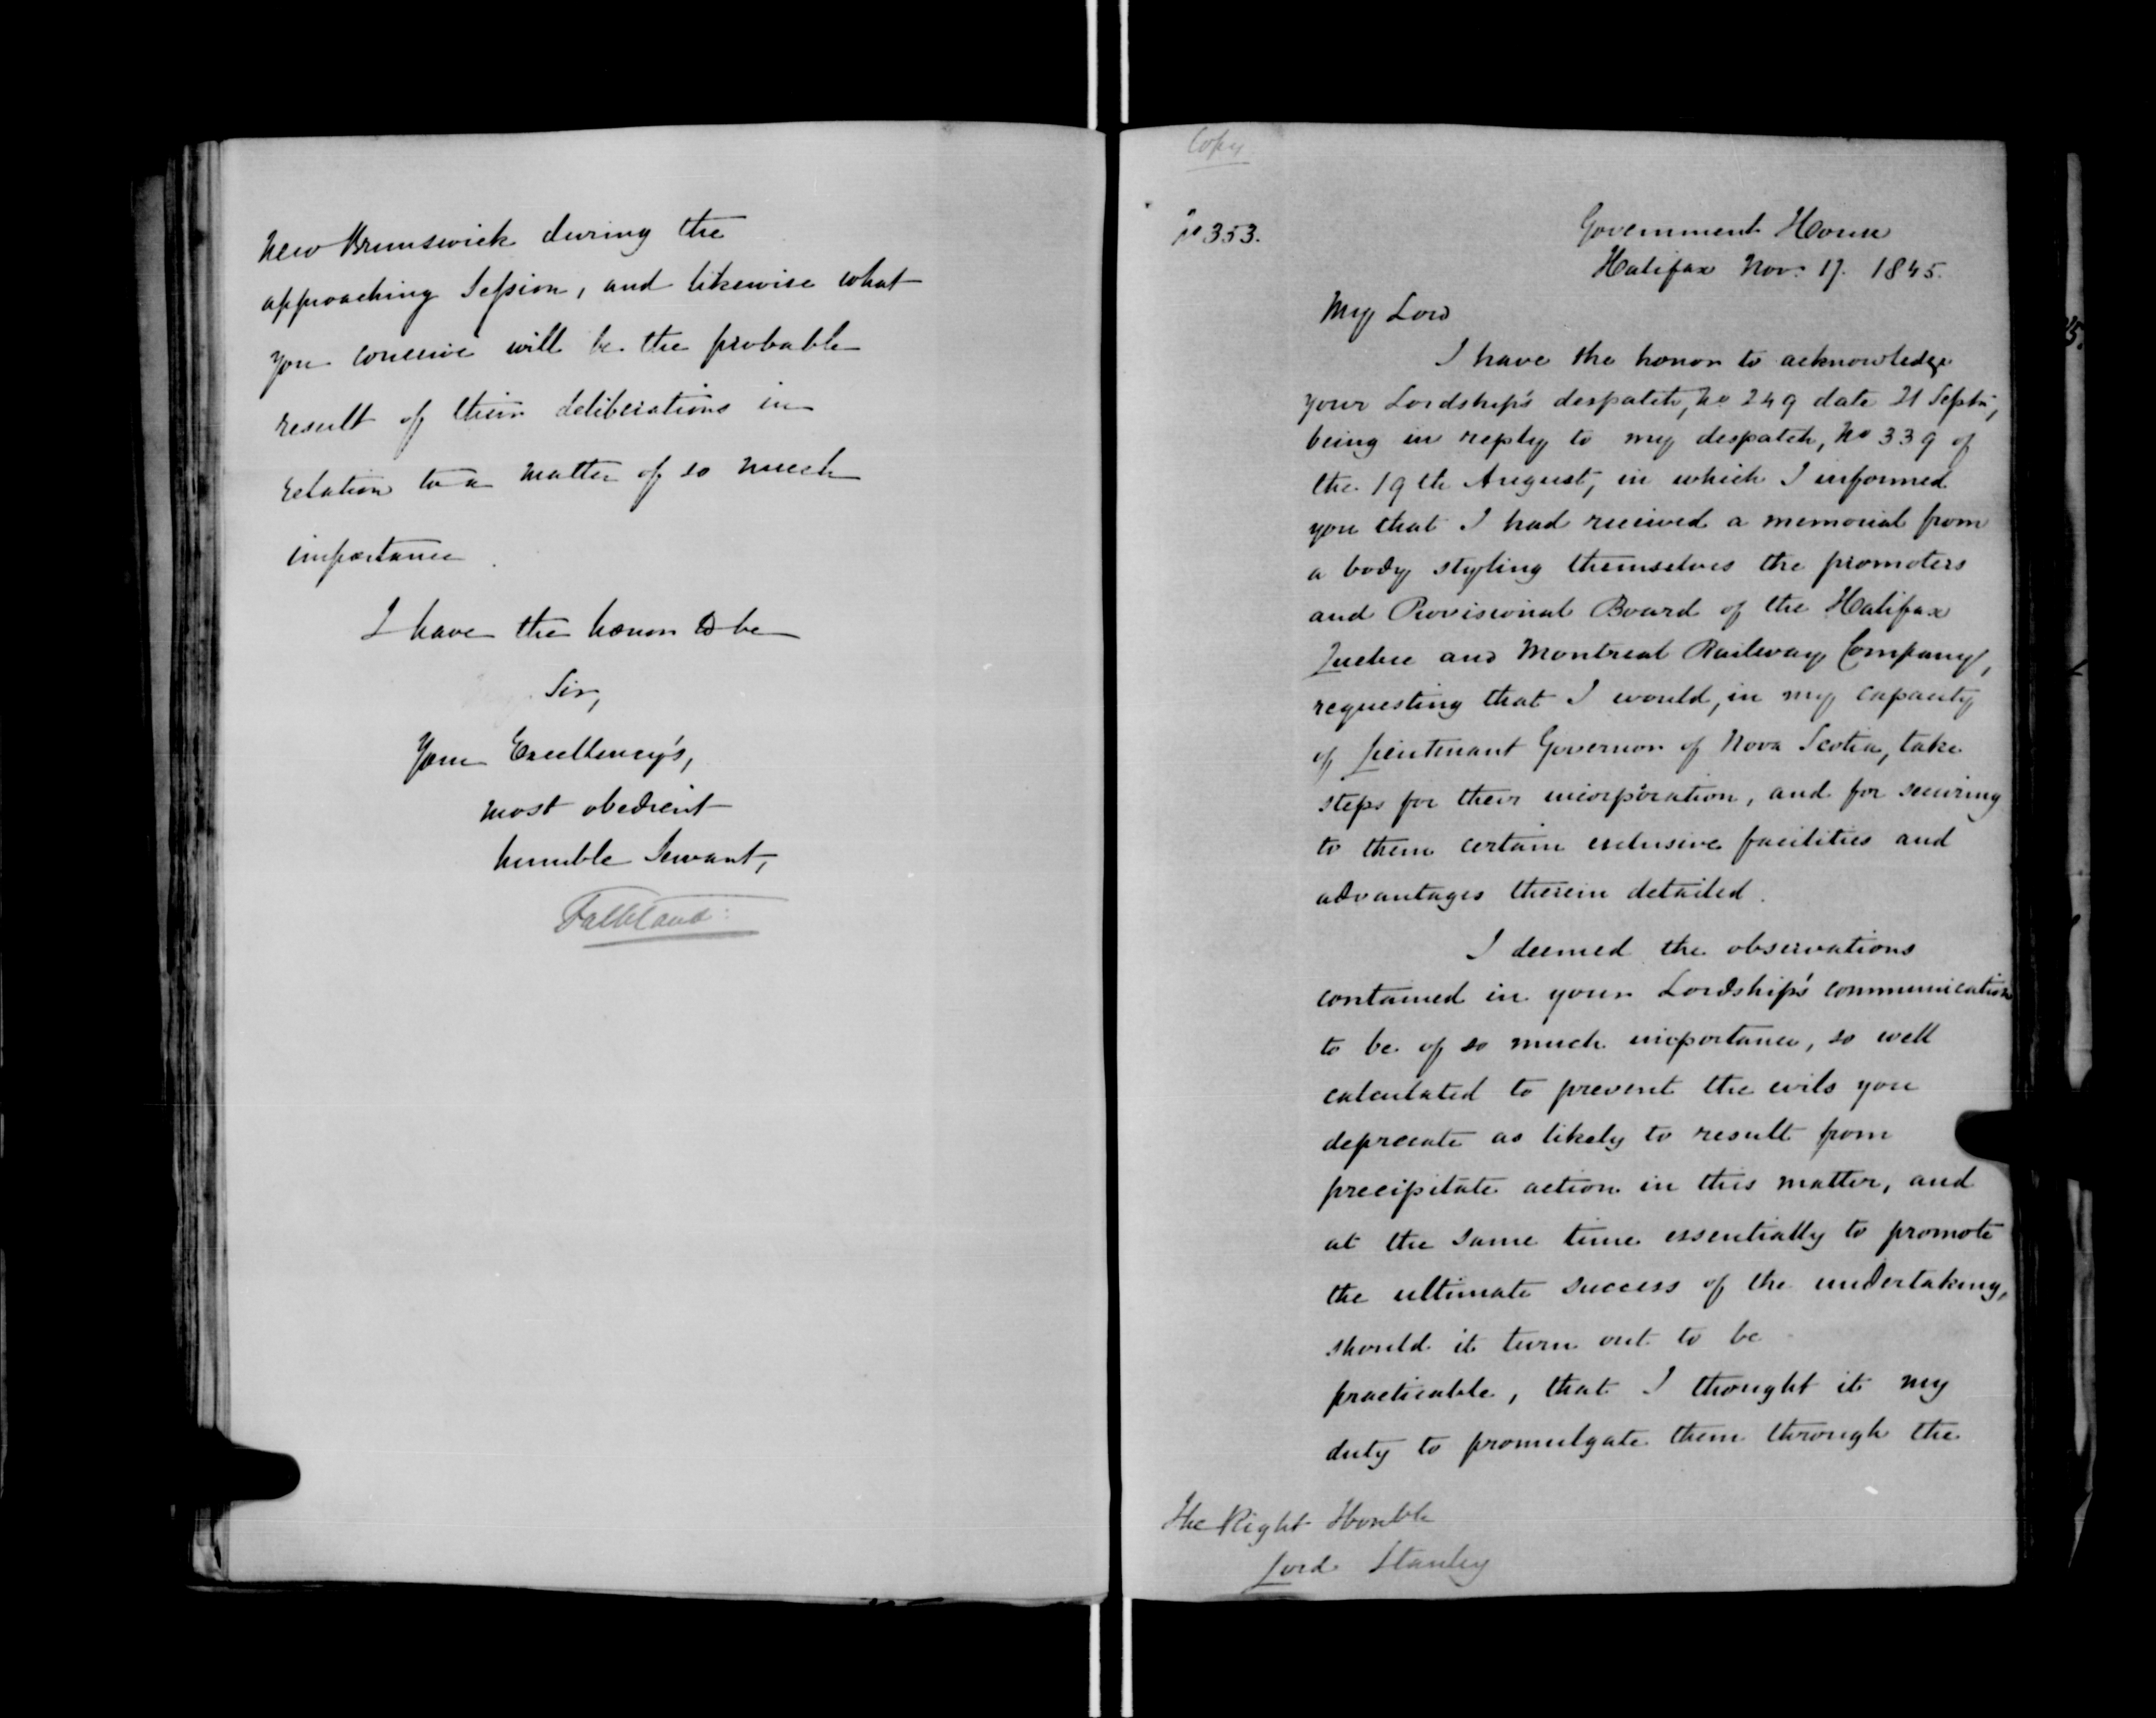 New Brunswick during the
approaching Session, and likewise what
you conceive will be the probable
result of their deliberations in
relation to a matter of so much
importance.
I have the honor to be
Sir,
Your Excellency's,
most obedient
humble Servant,
Falkland
Copy
No 353.
Government House
Halifax Nov: 17. 1845.
My Lord
I have the honor to acknowledge
your Lordship's despatch, No 249 date 21 Septr,
being in reply to my despatch, No 339 of
the 19th August, in which I informed
you that I had received a memorial from
a body styling themselves the promoters
and Provisional Board of the Halifax
Quebec and Montreal Railway Company,
requesting that I would, in my capacity
of Lieutenant Governor of Nova Scotia, take
steps for their incorporation, and for securing
to them certain exclusive facilities and
advantages therein detailed.
I deemed the observations
contained in your Lordship's communication
to be of so much importance, so well
calculated to prevent the evils you
deprecate as likely to result from
precipitate action in this matter, and
at the same time essentially to promote
the ultimate success of the undertaking,
should it turn out to be
practicable, that I thought it my
duty to promulgate them through the
The Right Honble
Lord Stanley